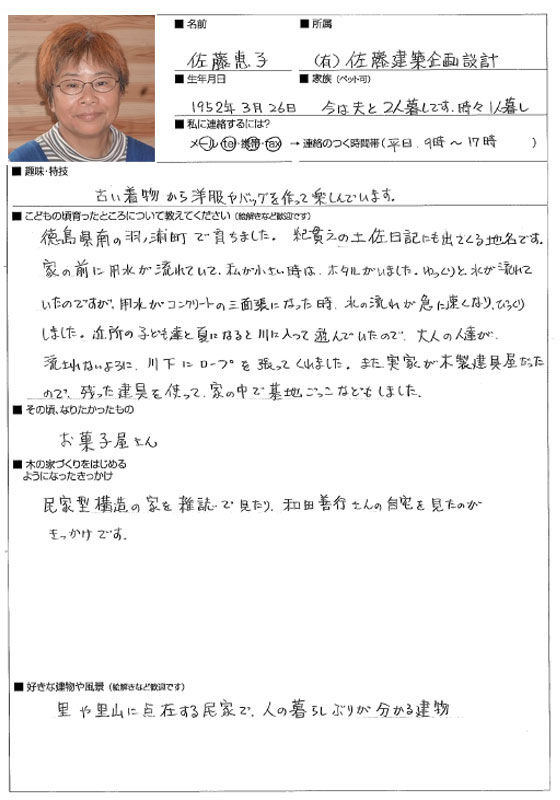 ■ 名前
■ 所属
佐藤恵子
(有)佐藤建築企画設計
■ 生年月日
■ 家族 (ペット可)
1952年3月26日
今は夫と2人暮しです。時々1人暮し
■ 私に連絡するには?
メール・tel・携帯・fax → 連絡のつく時間帯(平日.9時〜17時)
■ 趣味・特技
古い着物から洋服やバッグを作って楽しんでいます。
■ こどもの頃育ったところについて教えてください (絵解きなど歓迎です)
徳島県南の羽ノ浦町で育ちました。紀貫之の土佐日記にも出てくる地名です。
家の前に用水が流れていて、私が小さい時は、ホタルがいました。ゆっくりと水が流れて
いたのですが、用水がコンクリートの三面張になった時、水の流れが急に速くなり、びっくり
しました。近所の子ども達と夏になると川に入って遊んでいたので、大人の人達が、
流されないように、川下にロープを張ってくれました。また実家が木製建具屋だった
ので、残った建具を使って、家の中で基地ごっこなどもしました。
■ その頃、なりたかったもの
お菓子屋さん
■ 木の家づくりをはじめる
ようになったきっかけ
民家型構造の家を雑誌で見たり、和田善行さんの自宅を見たのが
きっかけです。
■ 好きな建物や風景 (絵解きなど歓迎です)
里や里山に点在する民家で、人の暮らしぶりが分かる建物